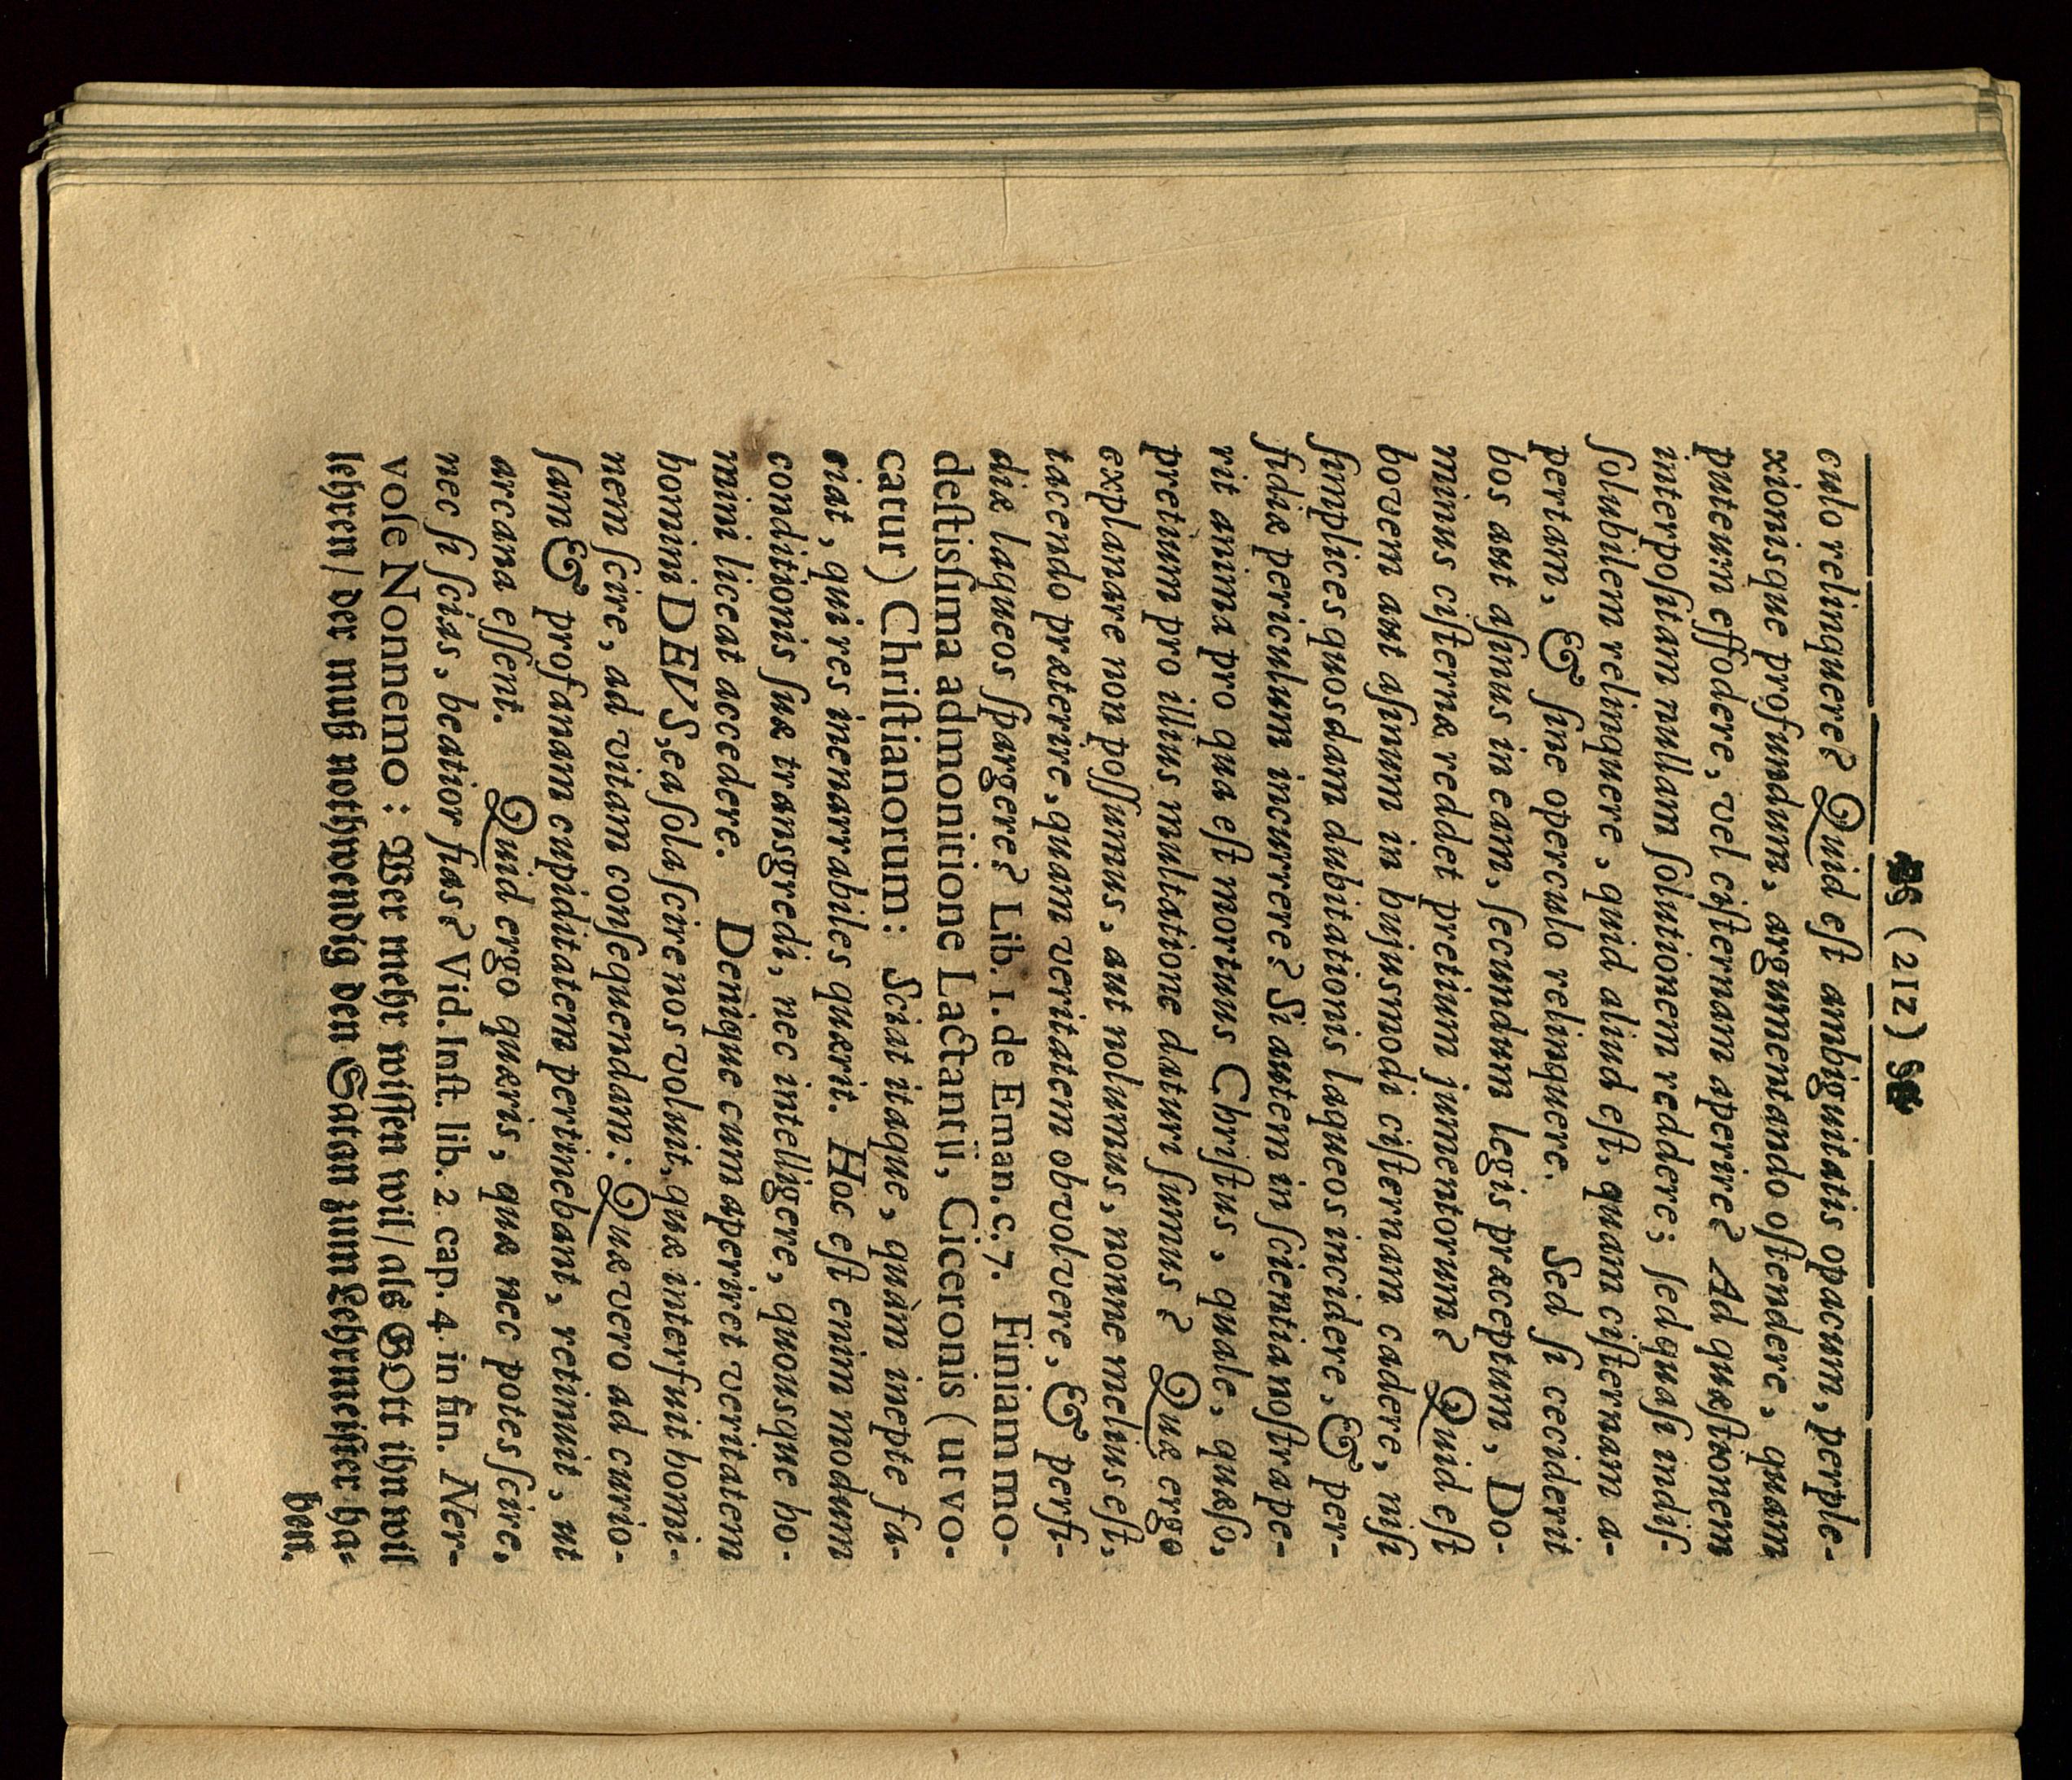 (212)
culo relinquere? Quid eſt ambiguitatis opacum, perple-
xionisque profundum, argumentando oſtendere, quam
puteum effodere, vel ciſternam aperire? Ad quæſtionem
interpoſitam nullam ſolutionem reddere; ſed quaſi indiſ-
ſolubilem relinquere, quid aliud eſt, quam ciſternam a-
pertam, & ſine operculo relinquere. Sed ſi ceciderit
bos aut aſinus in eam, ſecundum legis præceptum, Do-
minus ciſternæ reddet pretium jumentorum? Quid eſt
bovem aut aſinum in hujusmodi ciſternam cadere, niſi
ſimplices quosdam dubitationis laqueos incidere, & per-
fidiæ periculum incurrere? Si autem in ſcientia noſtra pe-
rit anima pro qua eſt mortuus Chriſtus, quale, quæſo,
pretium pro illius multatione daturi ſumus? Quæ ergo
explanare non poſſumus, aut nolumus, nonne melius eſt,
tacendo præterire, quam veritatem obvolvere, & perfi-
diæ laqueos ſpargere? Lib. 1. de Eman. c. 7. Finiam mo-
deſtisſima admonitione Lactantii, Ciceronis (ut vo-
catur) Chriſtianorum: Sciat itaque, quàm inepte fa-
ciat, qui res inenarrabiles quærit. Hoc eſt enim modum
conditionis ſuæ transgredi, nec intelligere, quousque ho-
mini liceat accedere. Denique cum aperiret veritatem
homini DEVS, ea ſola ſcire nos voluit, quæ interfuit homi-
nem ſcire, ad vitam conſequendam: Quæ vero ad curio-
ſam & profanam cupiditatem pertinebant, retinuit, ut
arcana eſſent. Quid ergo quæris, quæ nec potes ſcire,
nec ſi ſcias, beatior fias? Vid. Inſt. lib. 2. cap. 4. in fin. Ner-
voſe Nonnemo: Wer mehr wiſſen wil/ als GOtt ihn wil
lehren/ der muß nothwendig den Satan zum Lehrmeiſter ha-
ben.